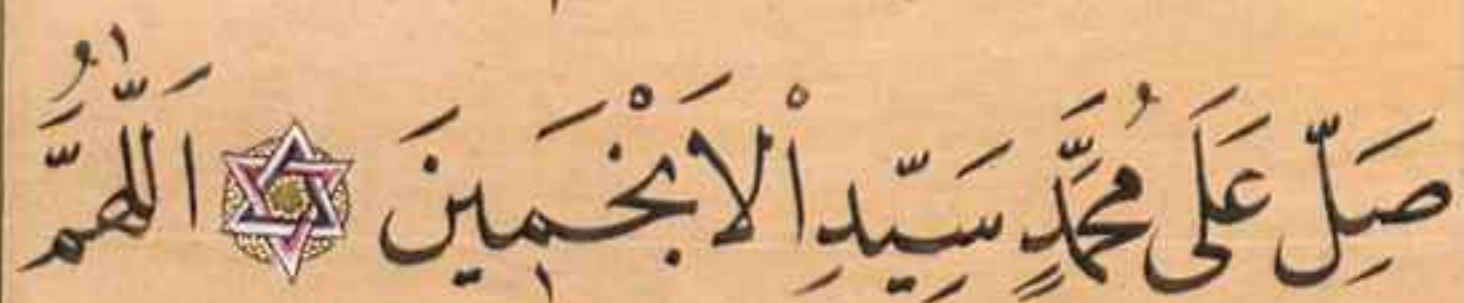 صَلِّ عَلَى مُحَمَّدٍ سَيِّدِ اْلاَنْجَمِينَ اَللّٰهُمَّ